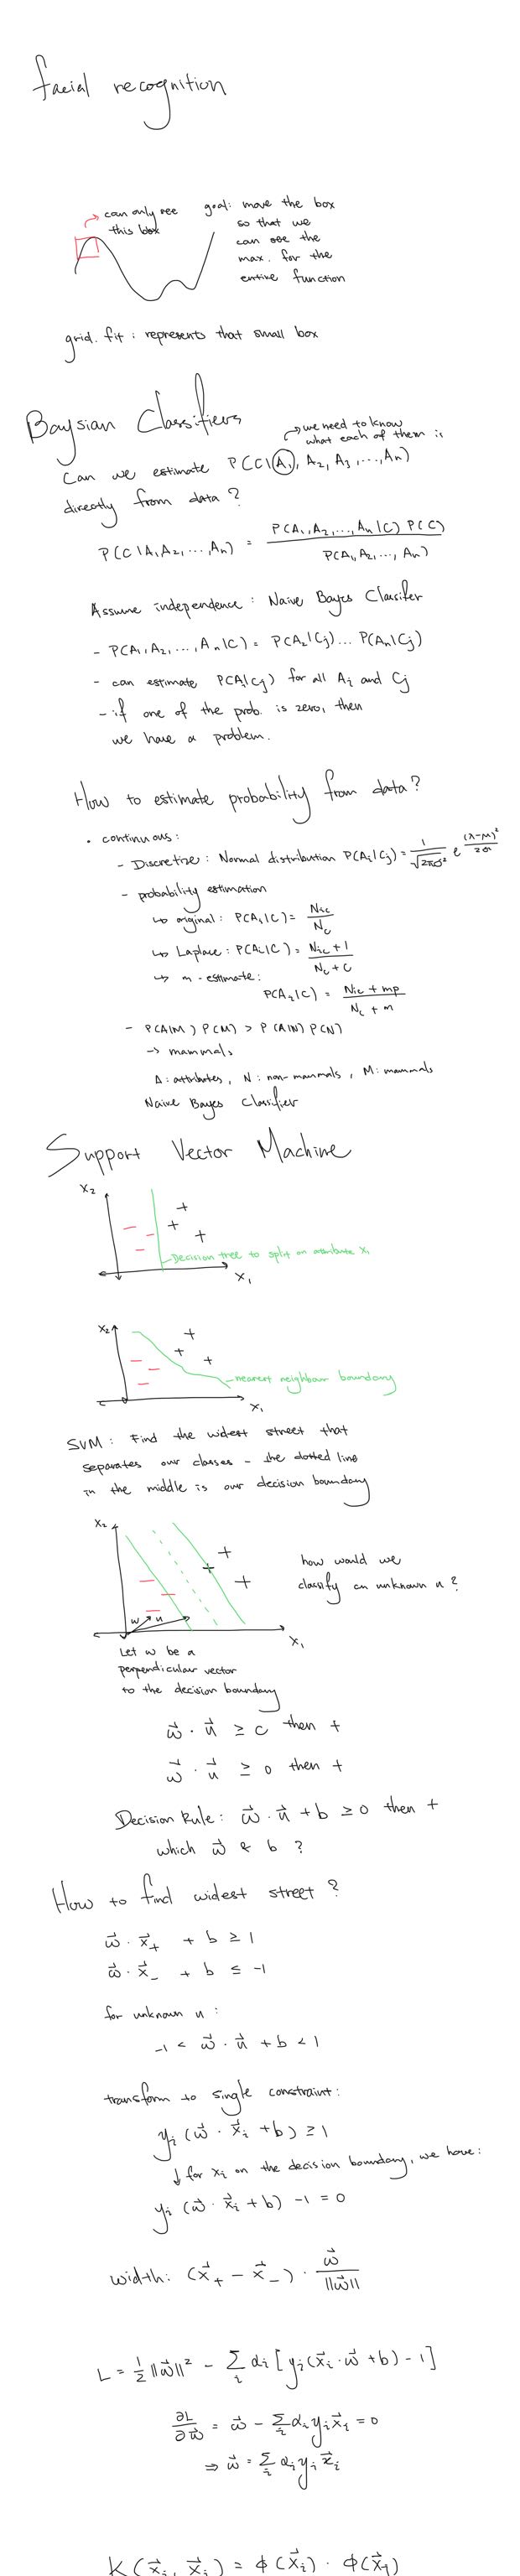 facial recognition
can only see
this box
goal: move the box
so that we
can see the
max. for the
entire function
grid.fit : represents that small box
Baysian Classifiers
we need to know
what each of them is
Can we estimate P(C|A₁, A₂, A₃, ..., An)
directly from data?
P(C|A₁A₂, ..., An) = P(A₁,A₂,...,An|C) P(C) / P(A₁,A₂,..., An)
Assume independence: Naive Bayes Clasifer
- P(A₁,A₂,...,An|C) = P(A₂|Cj)... P(An|Cj)
- can estimate P(Ai|Cj) for all Ai and Cj
- if one of the prob. is zero, then
we have a problem.
How to estimate probability from data?
• continuous:
- Discretize: Normal distribution P(Ai|Cj) = 1/√2πσ² e (x-μ)²/2σ
- probability estimation
↳ original: P(Ai|C) = Nic/Nc
↳ Laplace: P(Ai|C) = Nic+1 / Nc+C
↳ m-estimate:
P(A₂|C) = Nic + mp / Nc + m
- P(A|M) P(M) > P(A|N) P(N)
→ mammals
A: attributes, N: non-mammals, M: mammals
Naive Bayes Classifier
Support Vector Machine
X₂
Decision tree to split on attribute X₁
X₁
X₂
nearest neighbour boundary
X₁
SVM: Find the widest street that
separates our classes - the dotted line
in the middle is our decision boundary
X₂
how would we
classify an unknown u?
w u
X₁
Let w be a
perpendicular vector
to the decision boundary
w⃗ · u⃗ ≥ c then +
w⃗ · u⃗ ≥ 0 then +
Decision Rule: w⃗ · u⃗ + b ≥ 0 then +
which w⃗ & b ?
How to find widest street?
w⃗ · x⃗₊ + b ≥ 1
w⃗ · x⃗₋ + b ≤ -1
for unknown u :
-1 < w⃗ · u⃗ + b < 1
transform to single constraint:
yi (w⃗ · x⃗i + b) ≥ 1
↓ for xi on the decision boundary, we have:
yi (w⃗ · x⃗i + b) - 1 = 0
width: (x⃗₊ - x⃗₋) · w⃗/||w⃗||
L = ½||w⃗||² - Σi αi [yi(x⃗i · w⃗ + b) - 1]
∂L/∂w⃗ = w⃗ - Σi αi yi x⃗i = 0
⇒ w⃗ = Σi αi yi x⃗i
K(x⃗i, x⃗j) = ϕ(x⃗i) · ϕ(x⃗j)